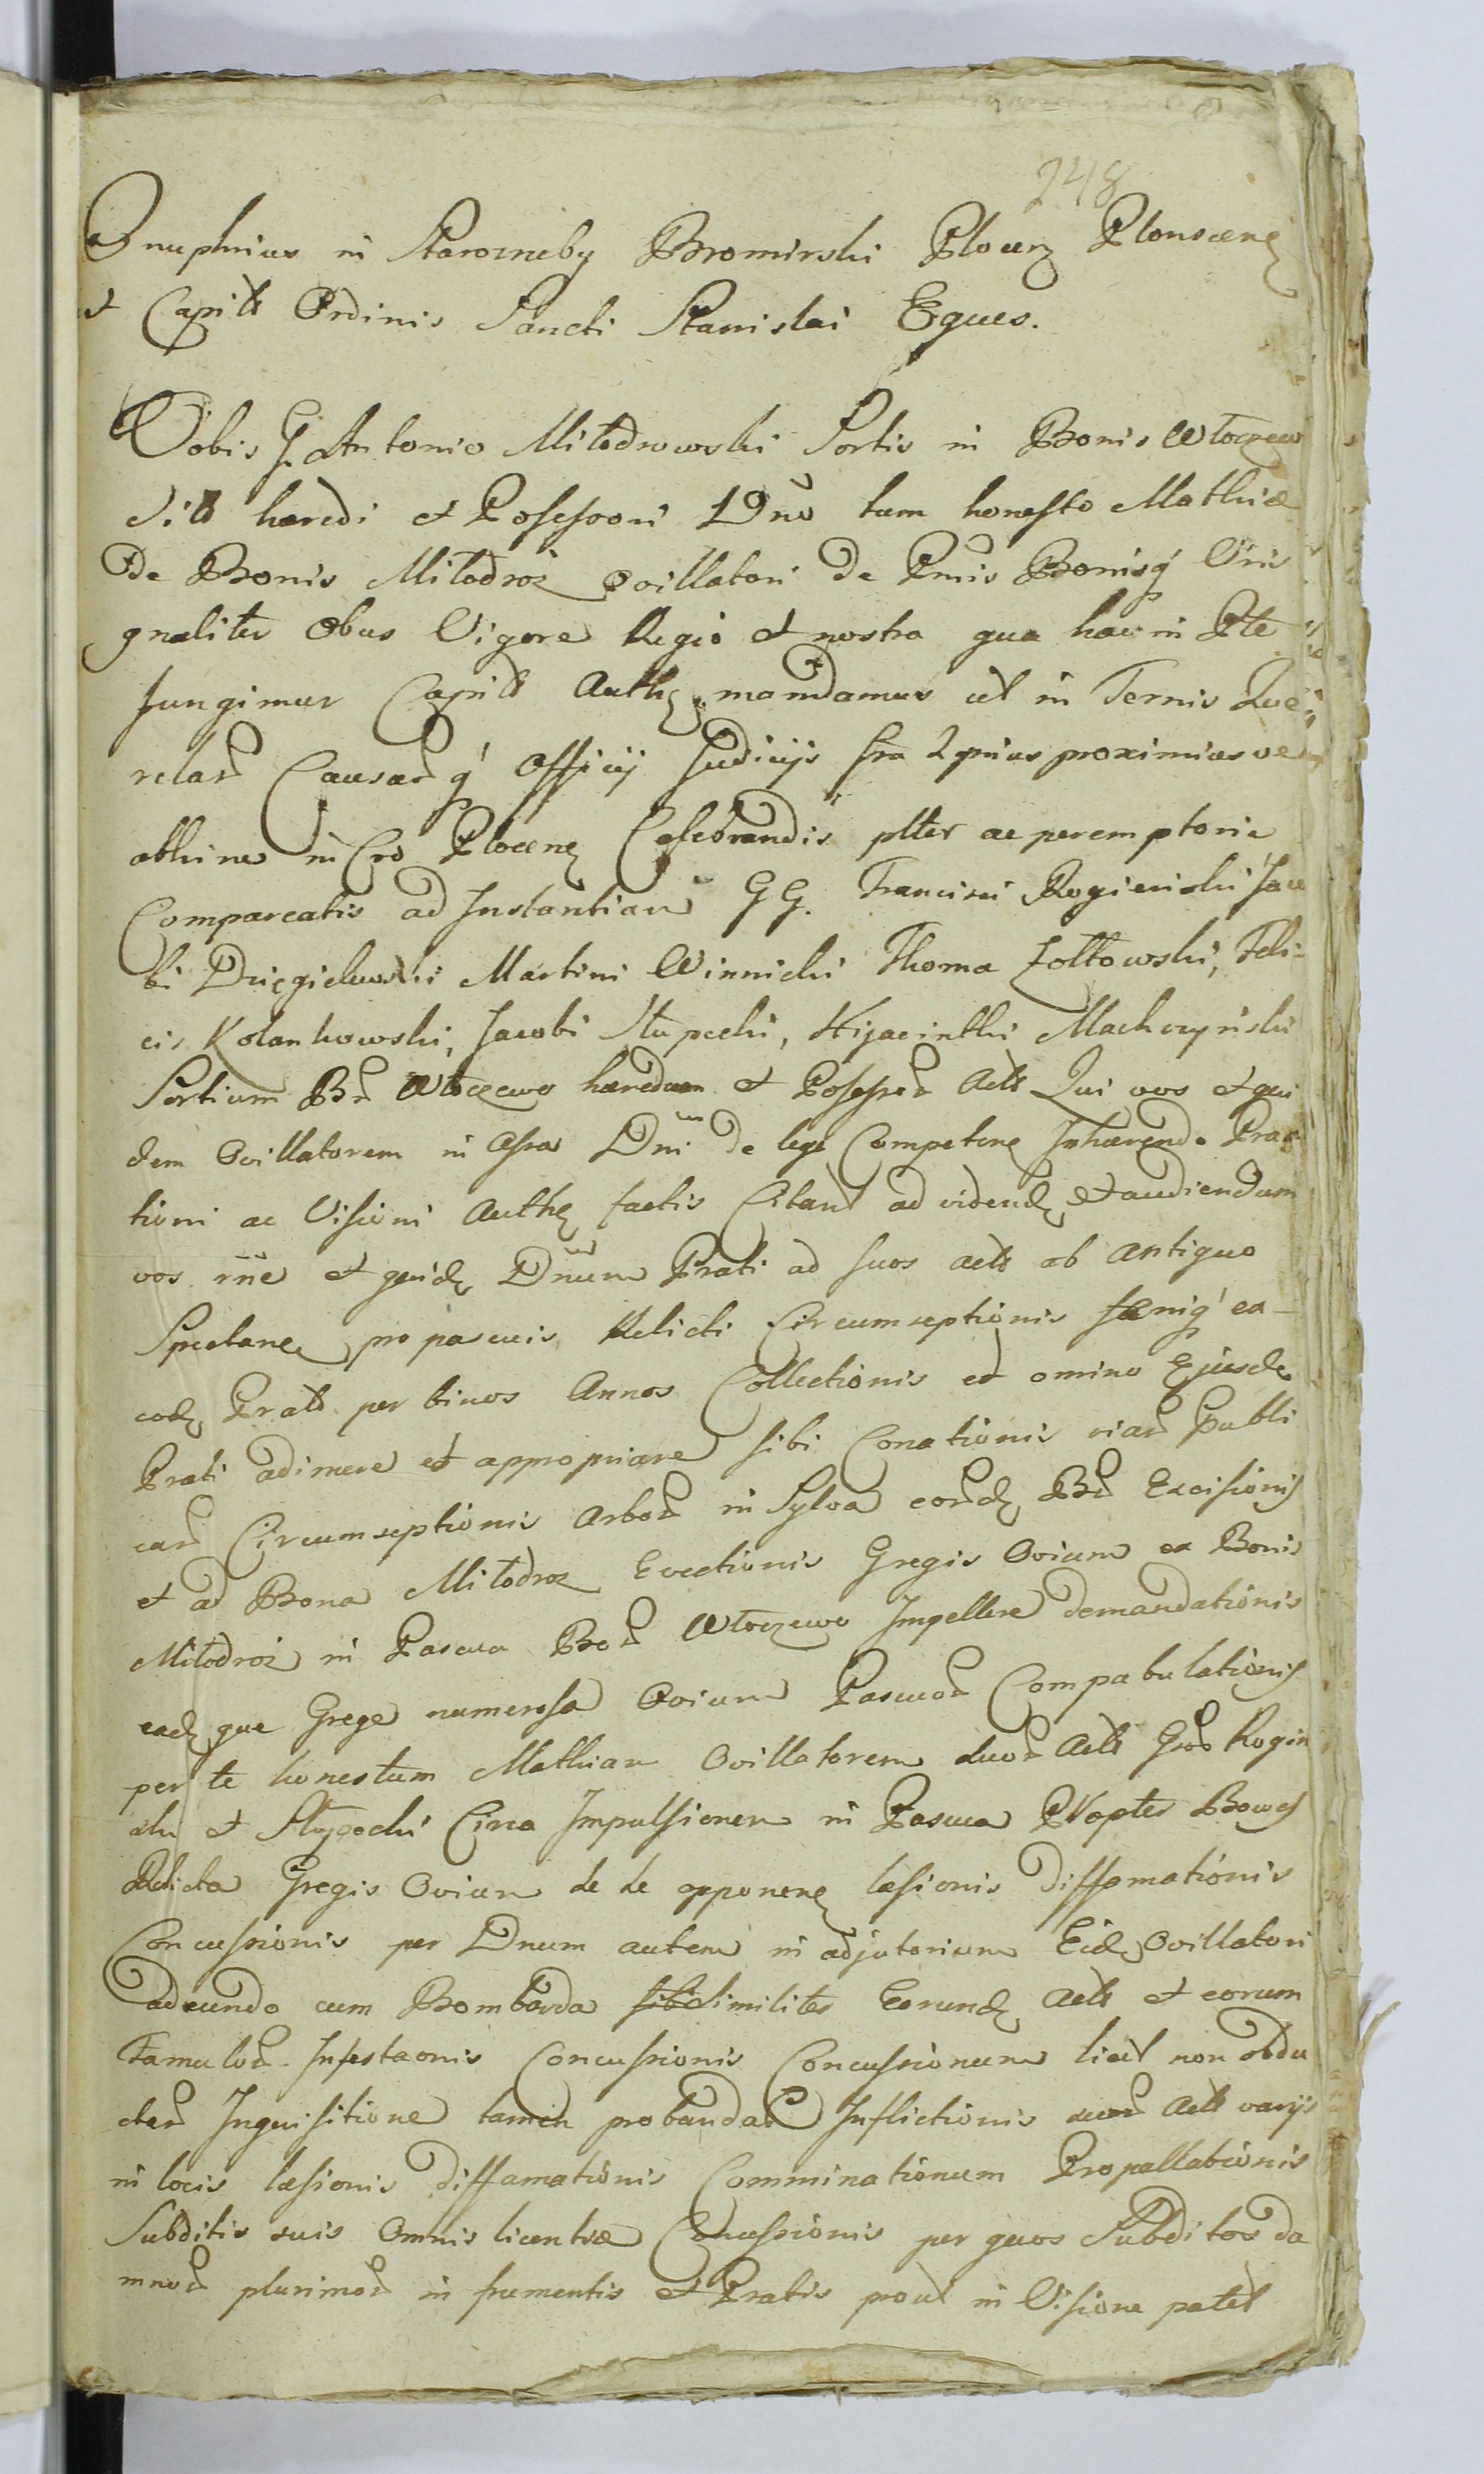 248
Onuphrius in Starorzreby Bromirski Plocen Plonscen
et Capitl Ordinis Sancti Stanislai Eques.
Vobis G. Antonio Miłodrowski Sortis in Bonis Włoczew
sitt hæredi et Possessori Dno tum honesto Mathiæ
De Bonis Miłodroż ovillatori De Pmis Bonisq' Vris
gnaliter Obus Vigore Regiô et nostra qua hac in Pte
fungimur Capitl Authe mandamus ut in Termis Que
relar Causarq' Officij Judicijs fra 2 prius proximius ve
abhinc in Cro Plocen Celebrandis plter ac peremptorie
Compareatis ad Instantiam GG. Francisci Rogienski Jaco
bi Dzięgielewski Martini Winnicki Thoma Zołtowski, Feli-
cis Kolankowski, Jacobi Słupecki, Hijacinthi Machczyński
Sortium Br Włoczewo hæredum et Possessor Actt Qui vos et qui
dem Ovillatorem in Assra Dni de lege Competen Inhærendo Pras
tioni ac Visioni Authe factis Citant ad videnđ et audiendum
vos rne et quidę Dnum Prati ad suos actt ab antiquo
Spectane pro pascuis Relicti Circumseptionis fænig' ex-
eodę Prato per binos Annos Collectionis ed omino Ejusdę
Prati adimere et appropriare sibi Conationis viar Publi
car Circumseptionis Arbor in Sylva eordę Br Excisionis
et ad Bona Miłodroż Evectionis Gregis Ovium ex Bonis
Miłodroż in Pascua Bor Włoczewo Impellere demandationis
eadę que Grege numerosa Ovium Pascuor Compabulationis
per te honestum Mathiam Ovillatorem duor Actt Gror Rogin
ski et Słupecki Circa Impulsionem in Pascua Propter Boves
Relicta Gregis Ovium de se opponene læsionis Diffamationis
Concussionis per Dnum autem in adjutorium Eidę Ovillatori
adeundo cum Bombarda sibi similiter Eorundę Actt et eorum
Famulor Infestaonis Concussionis Concussionum licet non obdu
ctar Inquisitione tamen probandar Inflictionis suor Actt varijs
in locis læsionis Diffamationis Comminationum Propallationis
Subditis suis Omnis licentiæ Concessionis per quos Subditos da
mnor plurimor in frumentis et Pratis prout in Visione patet